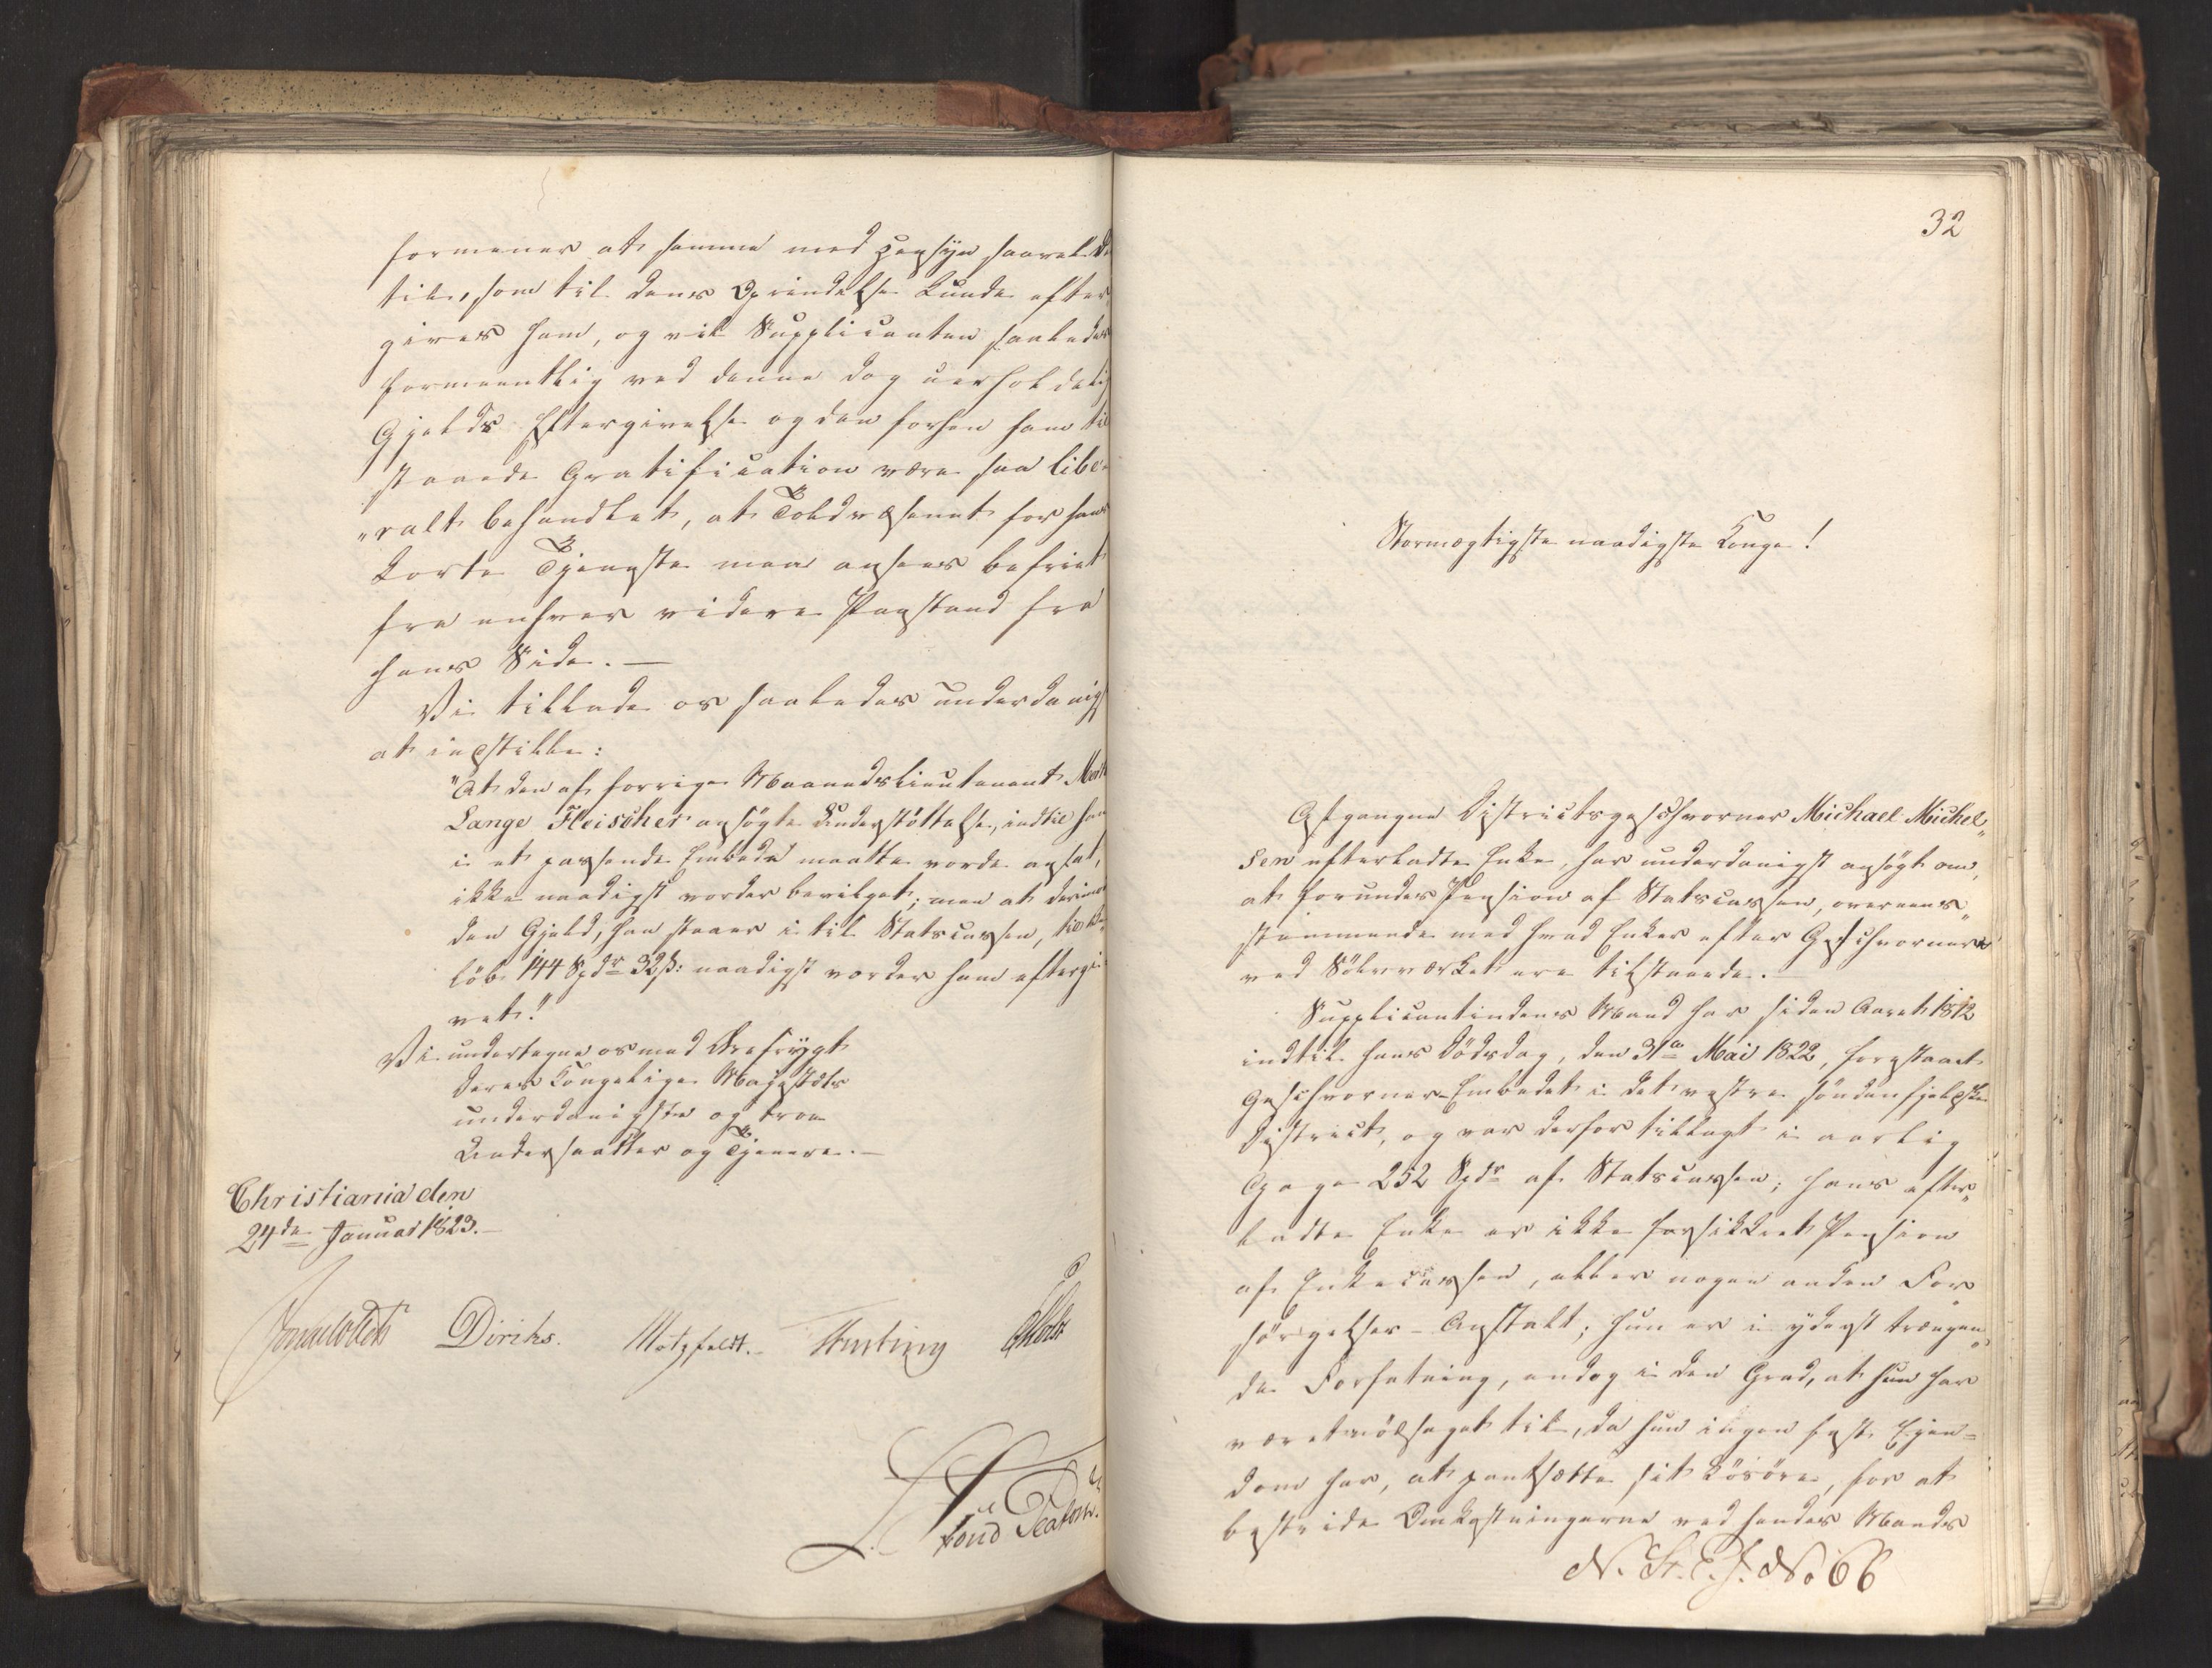 formener at samme med Hensyn saavel der
til, som til dens Oprindelse kunde efter
gives ham, og vil Supplicanten saaledes
formeentlig ved denne dog uerholdelig
Gjelds Eftergivelse og den forhen ham til
staaede Gratification være saa libe„
„ralt behandlet, at Toldvæsenet for hans
korte Tjeneste maa ansees befriet
fra enhver videre Paastand fra
hans Side. —
Vi tillade os saaledes underdanigst
at indstille:
"At den af forrige Maanedslieutenant
Lange Fleischer ansøgte Understøttelse, indtil han
i et passende Embede maatte vorde ansat,
ikke naadigst vorder bevilget; men at derimod
den Gjeld, han staaer i til Statscassen, til Be„
løb 144 Spdr 32 ß: naadigst vorder ham eftergi„
vet."
Vi undertegne os med Ærefrygt
Deres Kongelige Majestæts
underdanigste og troe
Undersaatter og Tjenere. —
Christiania den
24de Januar 1823. —
Diriks. Motzfeldt.
32
Stormægtigste naadigste Konge!
Afgangne Districtsgeschworner Michael Michel„
sen efterladte Enke, har underdanigst ansøgt om,
at forundes Pension af Statscassen, overeens„
stemmende med hvad Enker efter Geschwornere
ved Sølvværket ere tilstaaede.
Supplicantindens Mand har siden Aaret 1812
indtil hans Dødsdag, den 31te Mai 1822, forestaaet
Geschworner-Embedet i det vestre søndenfjeldske
District, og var derfor tillagt i aarlig
Gage 252 Spdr af Statscassen; hans efter„
ladte Enke er ikke forsikkret Pension
af Enkecassen, eller nogen anden For„
sørgelses-Anstalt; hun er i yderst trængen„
de Forfatning, endog i den Grad, at hun har
været nødsaget til, da hun ingen fast Eien=
dom har, at pantsætte sit Løsøre, for at
bestride Omkostningerne ved hendes Mands
N. St. E. J. No 66